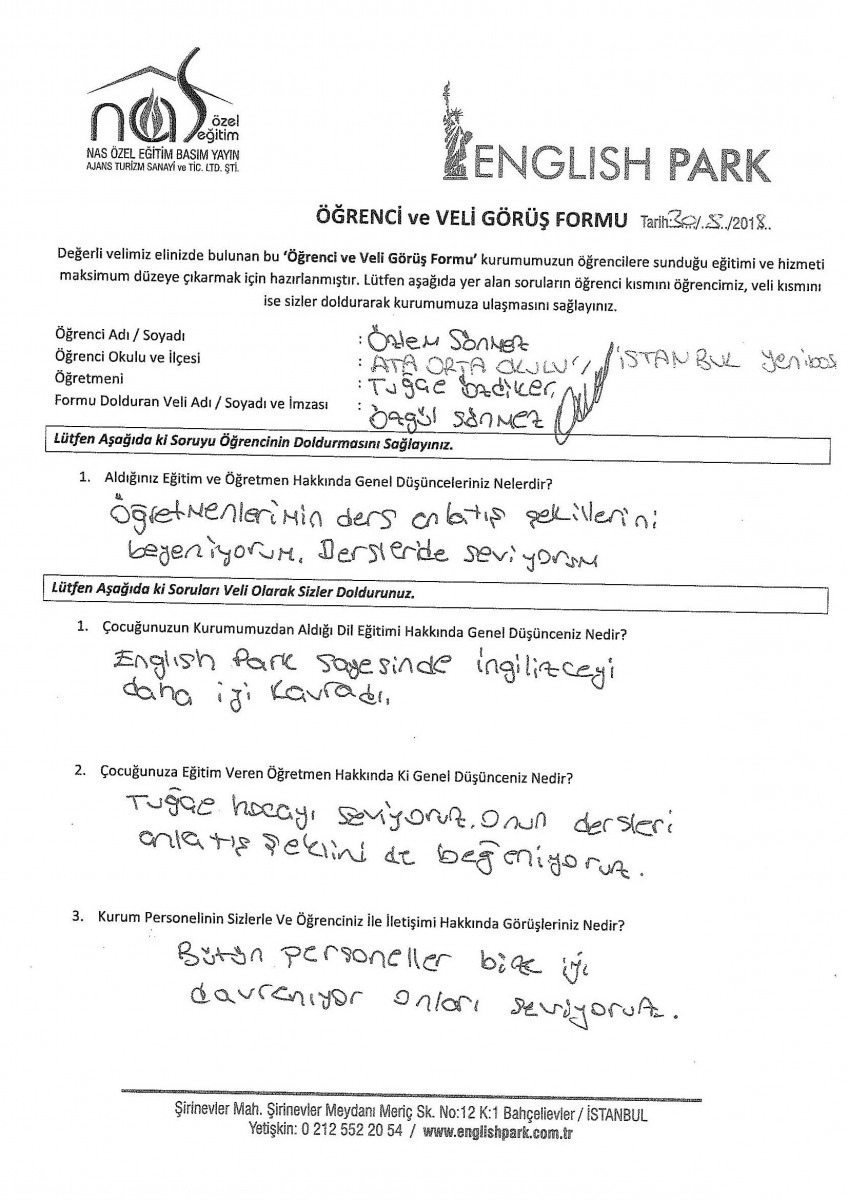 nas özel eğitim
NAS ÖZEL EĞİTİM BASIM YAYIN
AJANS TURİZM SANAYİ ve TİC. LTD. ŞTİ.
ENGLISH PARK
ÖĞRENCİ ve VELİ GÖRÜŞ FORMU Tarih:30./.5./2018..
Değerli velimiz elinizde bulunan bu 'Öğrenci ve Veli Görüş Formu' kurumumuzun öğrencilere sunduğu eğitimi ve hizmeti
maksimum düzeye çıkarmak için hazırlanmıştır. Lütfen aşağıda yer alan soruların öğrenci kısmını öğrencimiz, veli kısmını
ise sizler doldurarak kurumumuza ulaşmasını sağlayınız.
Öğrenci Adı / Soyadı : Özlem SÖNMEZ
Öğrenci Okulu ve İlçesi : ATA ORTA OKULU / İSTANBUL Yenibos
Öğretmeni : Tuğçe özdiker
Formu Dolduran Veli Adı / Soyadı ve İmzası : Özgül SÖNMEZ
Lütfen Aşağıda ki Soruyu Öğrencinin Doldurmasını Sağlayınız.
1. Aldığınız Eğitim ve Öğretmen Hakkında Genel Düşünceleriniz Nelerdir?
Öğretmenlerimin ders anlatış şekillerini
beğeniyorum. Dersleride seviyorum
Lütfen Aşağıda ki Soruları Veli Olarak Sizler Doldurunuz.
1. Çocuğunuzun Kurumumuzdan Aldığı Dil Eğitimi Hakkında Genel Düşünceniz Nedir?
English Park sayesinde İngilizceyi
daha iyi kavradı.
2. Çocuğunuza Eğitim Veren Öğretmen Hakkında Ki Genel Düşünceniz Nedir?
Tuğçe hocayı seviyoruz. Onun dersleri
anlatış şeklini de beğeniyoruz.
3. Kurum Personelinin Sizlerle Ve Öğrenciniz İle İletişimi Hakkında Görüşleriniz Nedir?
Bütün personeller bize iyi
davranıyor onları seviyoruz.
Şirinevler Mah. Şirinevler Meydanı Meriç Sk. No:12 K:1 Bahçelievler / İSTANBUL
Yetişkin: 0 212 552 20 54 / www.englishpark.com.tr